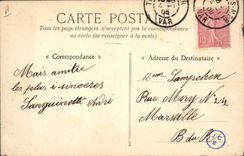 CARTE POSTALE
Tous les pays étrangers n'acceptent pas la correspondance
au recto (se renseigner à la poste)
« Correspondance »
« Adresse du Destinataire »
VAR
Mais amitié
les plus sincères
Sanguinetti André
Rue Mery N° 24
Marseille
B du R